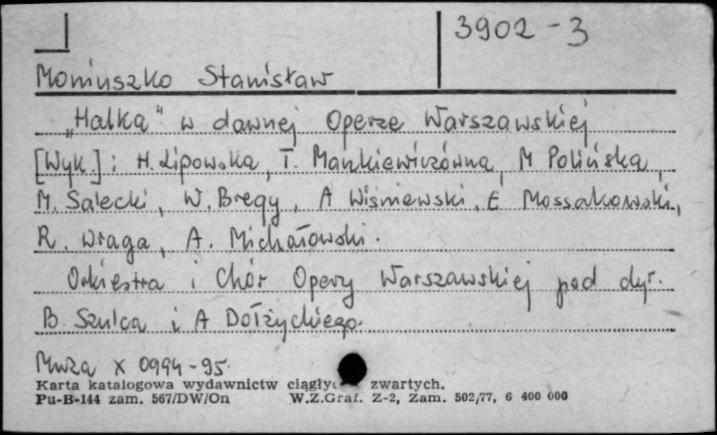 3902-3
Moniuszko Stanisław
„Halka" w dawnej Operze Warszawskiej
[Wyk.]: H. Lipowska, T. Mankiewiczówna, M Polińska,
M. Salecki, W. Bregy, A Wiśniewski, E Mossakowski,
R. Wraga, A. Michałowski.
Orkiestra i Chór Opery Warszawskiej pod dyr.
B. Szulca i A Dołżyckiego.
Muza X 0994-95.
Karta katalogowa wydawnictw zwartych.
Pu-B-144 zam. 567/DW/On W.Z.Graf. Z-2, Zam. 502/77, 6 400 000